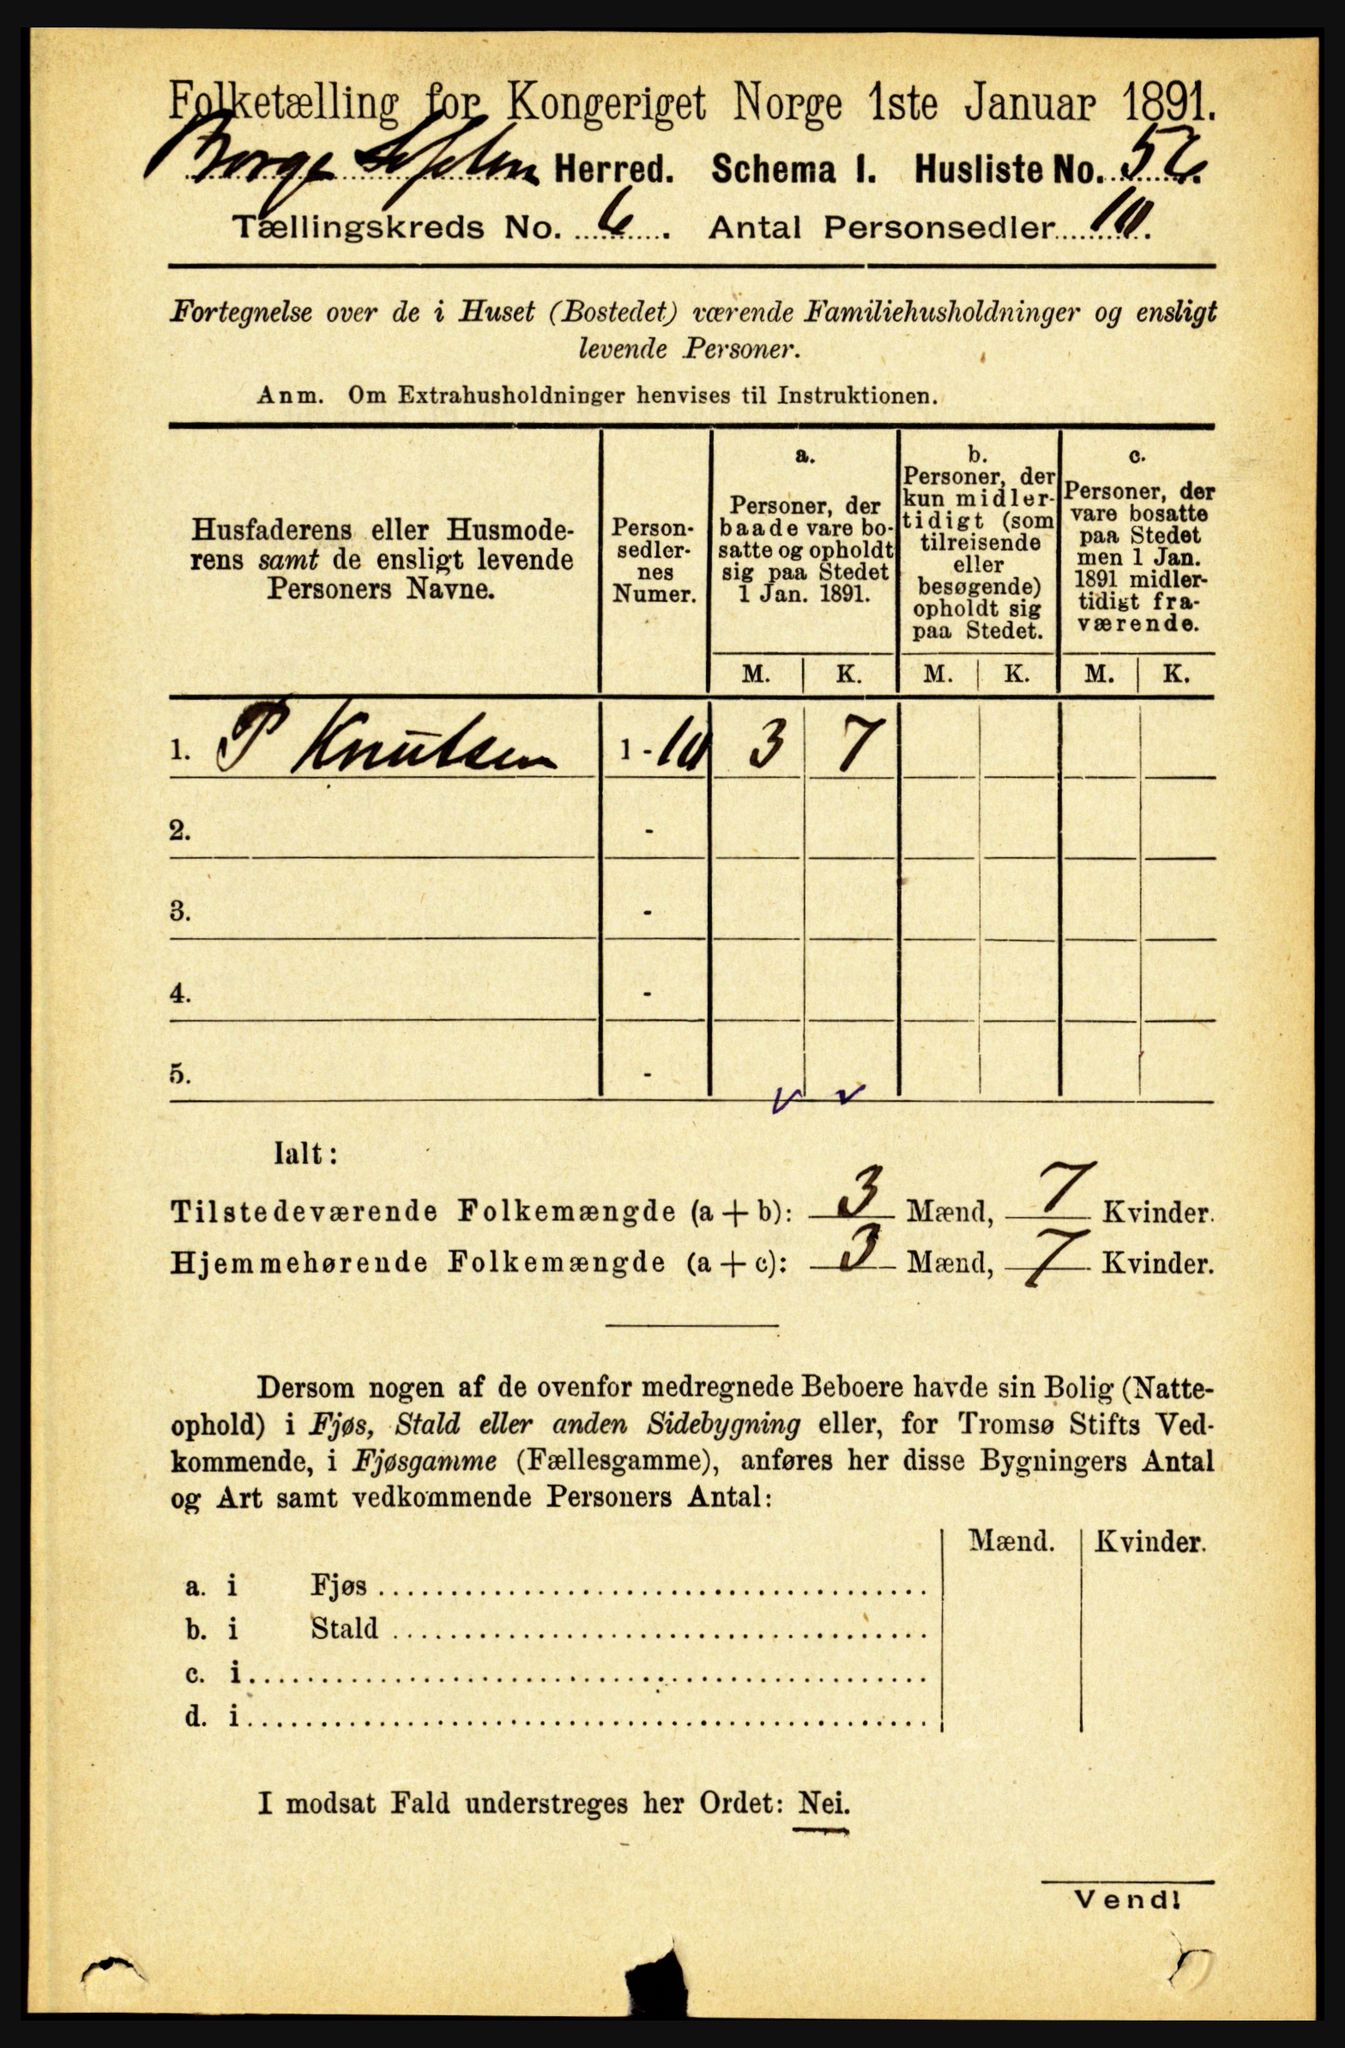 Folketælling for Kongeriget Norge 1ste Januar 1891.
Borge Herred. Schema I. Husliste No. 56.
Tællingskreds No. 6. Antal Personsedler 10.
Fortegnelse over de i Huset (Bostedet) værende Familiehusholdninger og ensligt
levende Personer.
Anm. Om Extrahusholdninger henvises til Instruktionen.
Husfaderens eller Husmode-
rens samt de ensligt levende
Personers Navne.
Person-
sedler-
nes
Numer.
a.
Personer, der
baade vare bo-
satte og opholdt
sig paa Stedet
1 Jan. 1891.
b.
Personer, der
kun midler-
tidigt (som
tilreisende
eller
besøgende)
opholdt sig
paa Stedet.
c.
Personer, der
vare bosatte
paa Stedet
men 1 Jan.
1891 midler-
tidigt fra-
værende.
M. K. M. K. M. K.
1. P Knutsen 1 - 10 3 7
2. -
3. -
4. -
5. -
Ialt:
Tilstedeværende Folkemængde (a + b): 3 Mænd, 7 Kvinder.
Hjemmehørende Folkemængde (a + c): 3 Mænd, 7 Kvinder.
Dersom nogen af de ovenfor medregnede Beboere havde sin Bolig (Natte-
ophold) i Fjøs, Stald eller anden Sidebygning eller, for Tromsø Stifts Ved-
kommende, i Fjøsgamme (Fællesgamme), anføres her disse Bygningers Antal
og Art samt vedkommende Personers Antal:
Mænd. Kvinder.
a. i Fjøs
b. i Stald
c. i
d. i
I modsat Fald understreges her Ordet: Nei.
Vend!